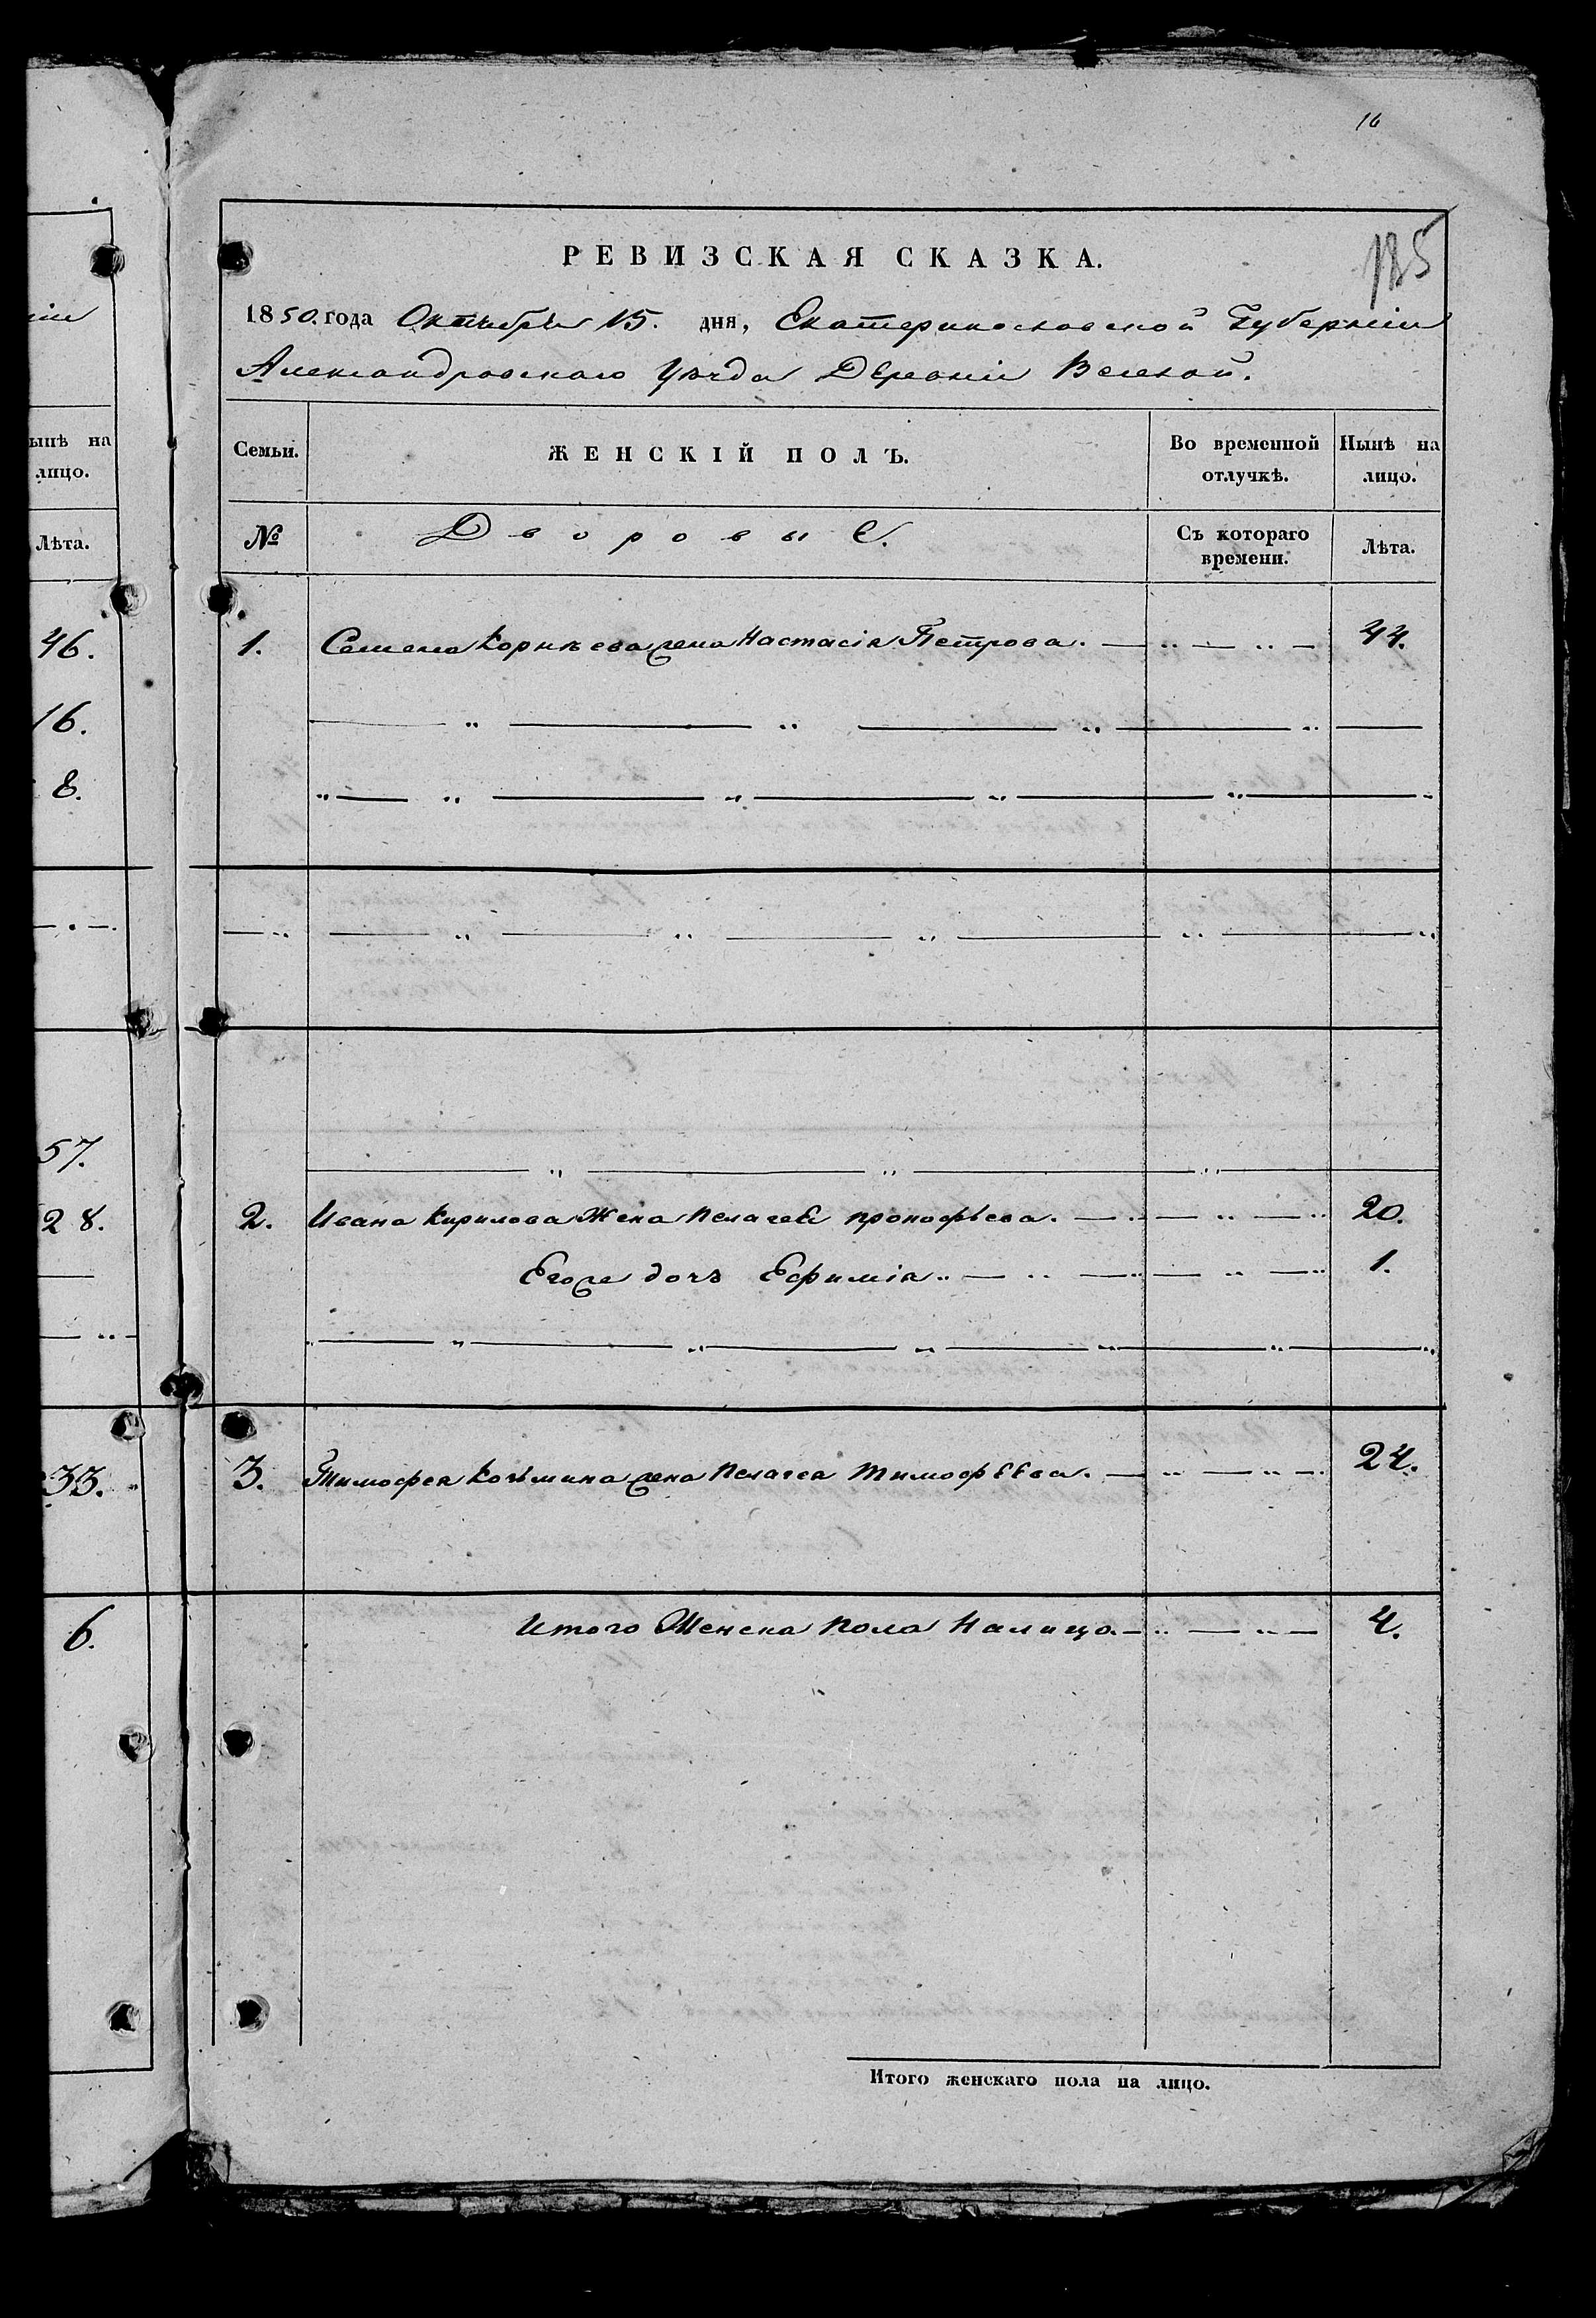 16
185
РЕВИЗСКАЯ СКАЗКА.
1850. года Октября 15. дня, Екатеринославской Губерніи
Александровскаго Уѣзда Деревни
Семьи.
ЖЕНСКІЙ ПОЛЪ.
Во временной отлучкѣ.
Нынѣ на лицо.
№
Дворовые.
Съ котораго времени.
Лѣта.
1. Семена Корнѣева жена Настасія Петрова. 44.
2. Ивана Кирилова Жена Пелагея прокофьева. 20.
Его же дочь Ефимія 1.
3. Тимофея Козьмина жена Пелагея Тимофеева. 24.
Итого Женска пола Налицо. 4.
Итого женскаго пола на лицо.
ынѣ на
лицо.
Лѣта.
46.
16.
8.
57.
28.
33.
6.